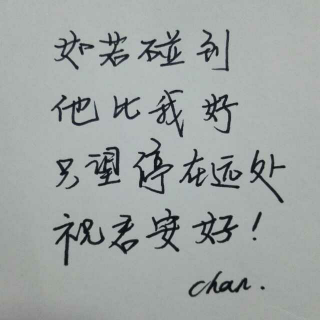 如若碰到
他比我好
只望停在远处
祝君安好！
chan.